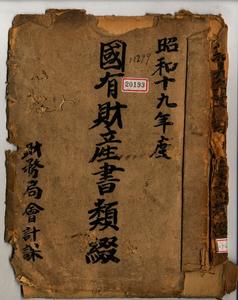 昭和十九年度
國有財産書類綴
財務局會計課
20193